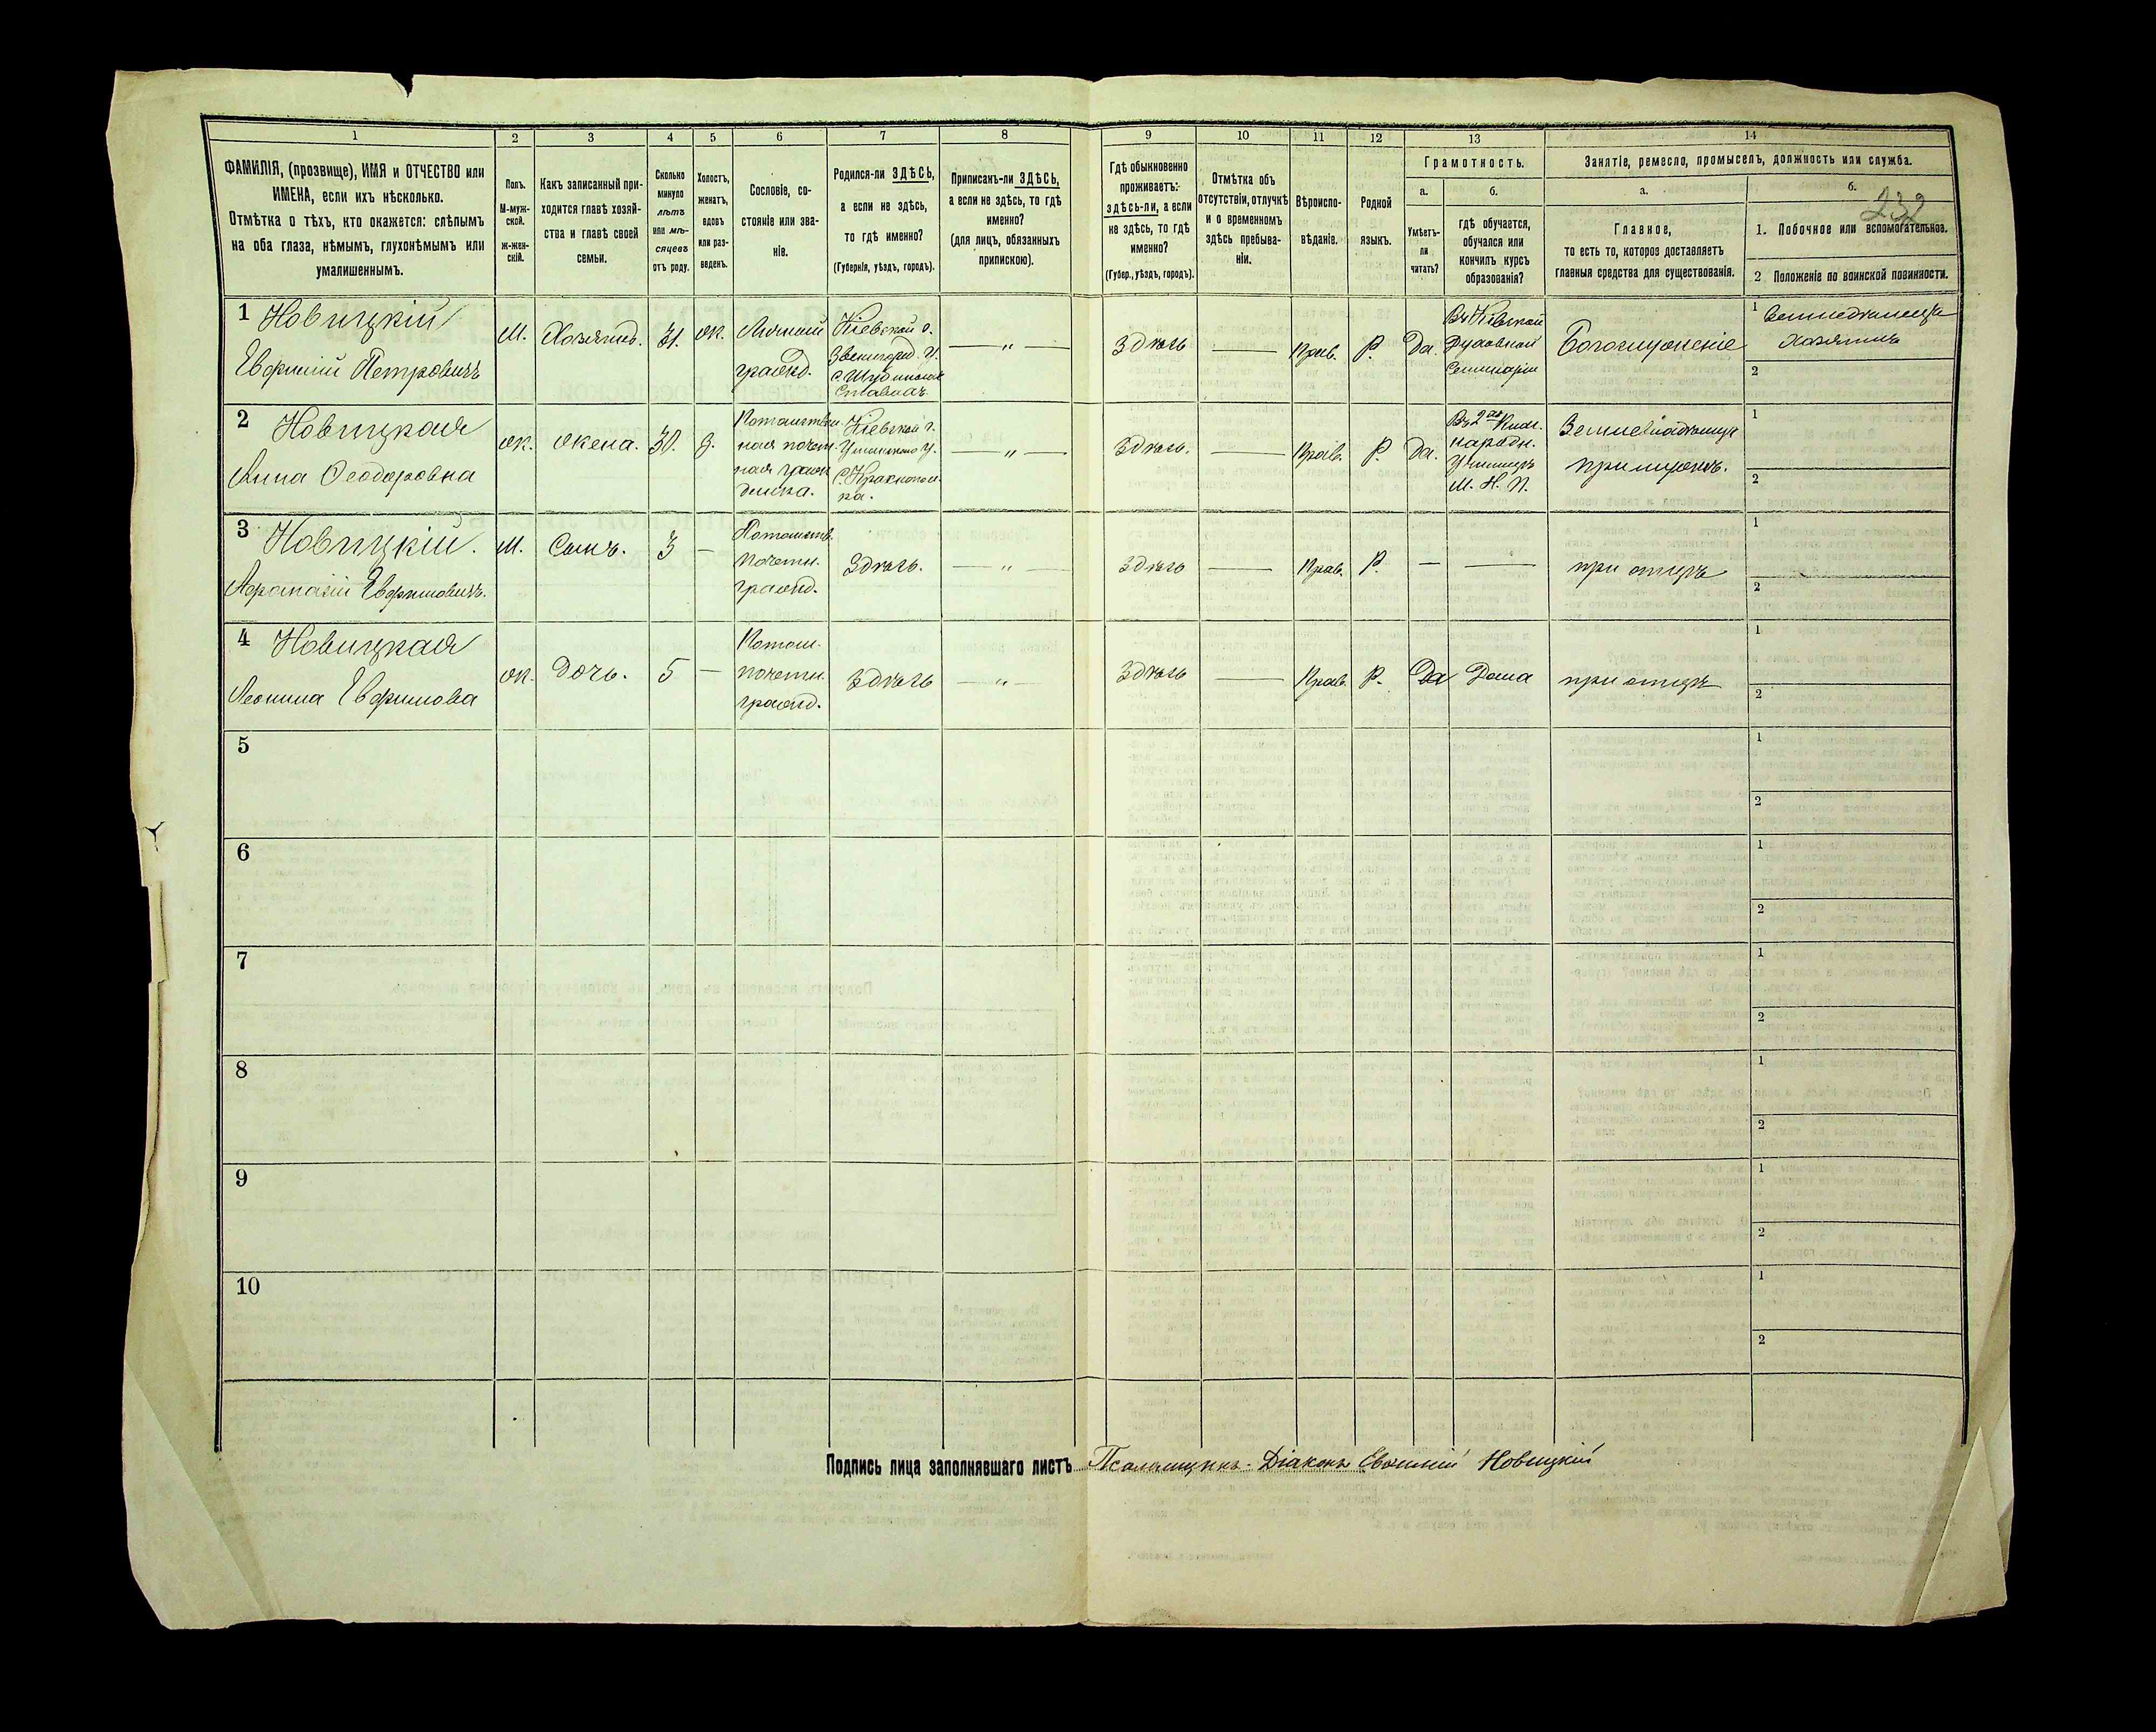 1 2 3 4 5 6 7 8 9 10 11 12 13 14
ФАМИЛІЯ, (прозвище), ИМЯ и ОТЧЕСТВО или
ИМЕНА, если ихъ нѣсколько.
Отмѣтка о тѣхъ, кто окажется: слѣпымъ
на оба глаза, нѣмымъ, глухонѣмымъ или
умалишеннымъ.
Полъ.
М-муж-
ской.
Ж-жен-
скій.
Какъ записанный при-
ходится главѣ хозяй-
ства и главѣ своей
семьи.
Сколько
минуло
лѣтъ
или мѣ-
сяцевъ
отъ роду.
Холостъ,
женатъ,
вдовъ
или раз-
веденъ.
Сословіе, со-
стояніе или зва-
ніе.
Родился-ли ЗДѢСЬ,
а если не здѣсь,
то гдѣ именно?
(Губернія, уѣздъ, городъ).
Приписанъ-ли ЗДѢСЬ,
а если не здѣсь, то гдѣ
именно?
(для лицъ, обязанныхъ
припискою).
Гдѣ обыкновенно
проживаетъ:
здѣсь-ли, а если
не здѣсь, то гдѣ
именно?
(Губер., уѣздъ, городъ).
Отмѣтка объ
отсутствіи, отлучкѣ
и о временномъ
здѣсь пребыва-
ніи.
Вѣроиспо-
вѣданіе.
Родной
языкъ.
Грамотность.
а.
Умѣетъ-
ли
читать?
б.
гдѣ обучается,
обучался или
кончилъ курсъ
образованія?
Занятіе, ремесло, промыселъ, должность или служба.
а.
Главное,
то есть то, которое доставляетъ
главныя средства для существованія.
б.
232
1. Побочное или вспомогательное.
2 Положеніе по воинской повинности.
1 Новицкій
Евфимій Петровичъ
М.
Хозяинъ.
31.
ж.
Личный
гражд.
Кіевской г.
Звенигород. у.
Здѣсь
Прав.
Р.
Да.
Въ Кіевской
Духовной
Семинаріи
Богослуженіе
1
хозяинъ
2
2 Новицкая
Анна Феодоровна
ж.
жена.
30.
З.
Потомствен-
ная почет-
ная граж
данка.
Кіевской г.
Уманскаго у.
Здѣсь.
Прав.
Р.
Да.
народн.
Училищѣ
М. Н. П.
при мужѣ.
1
2
3 Новицкій.
Афанасій Евфимовичъ.
М.
Сынъ.
3
Потомств.
почетн.
гражд.
Здѣсь.
Здѣсь
Прав.
Р.
при отцѣ
1
2
4 Новицкая
Леонила Евфимова
ж.
Дочь.
5
Потом.
почетн.
гражд.
Здѣсь
Здѣсь
Прав.
Р.
Да
Дома
при отцѣ
1
2
5
1
2
6
1
2
7
1
2
8
1
2
9
1
2
10
1
2
Подпись лица заполнявшаго листъ Псаломщикъ-Діаконъ Евфимій Новицкій